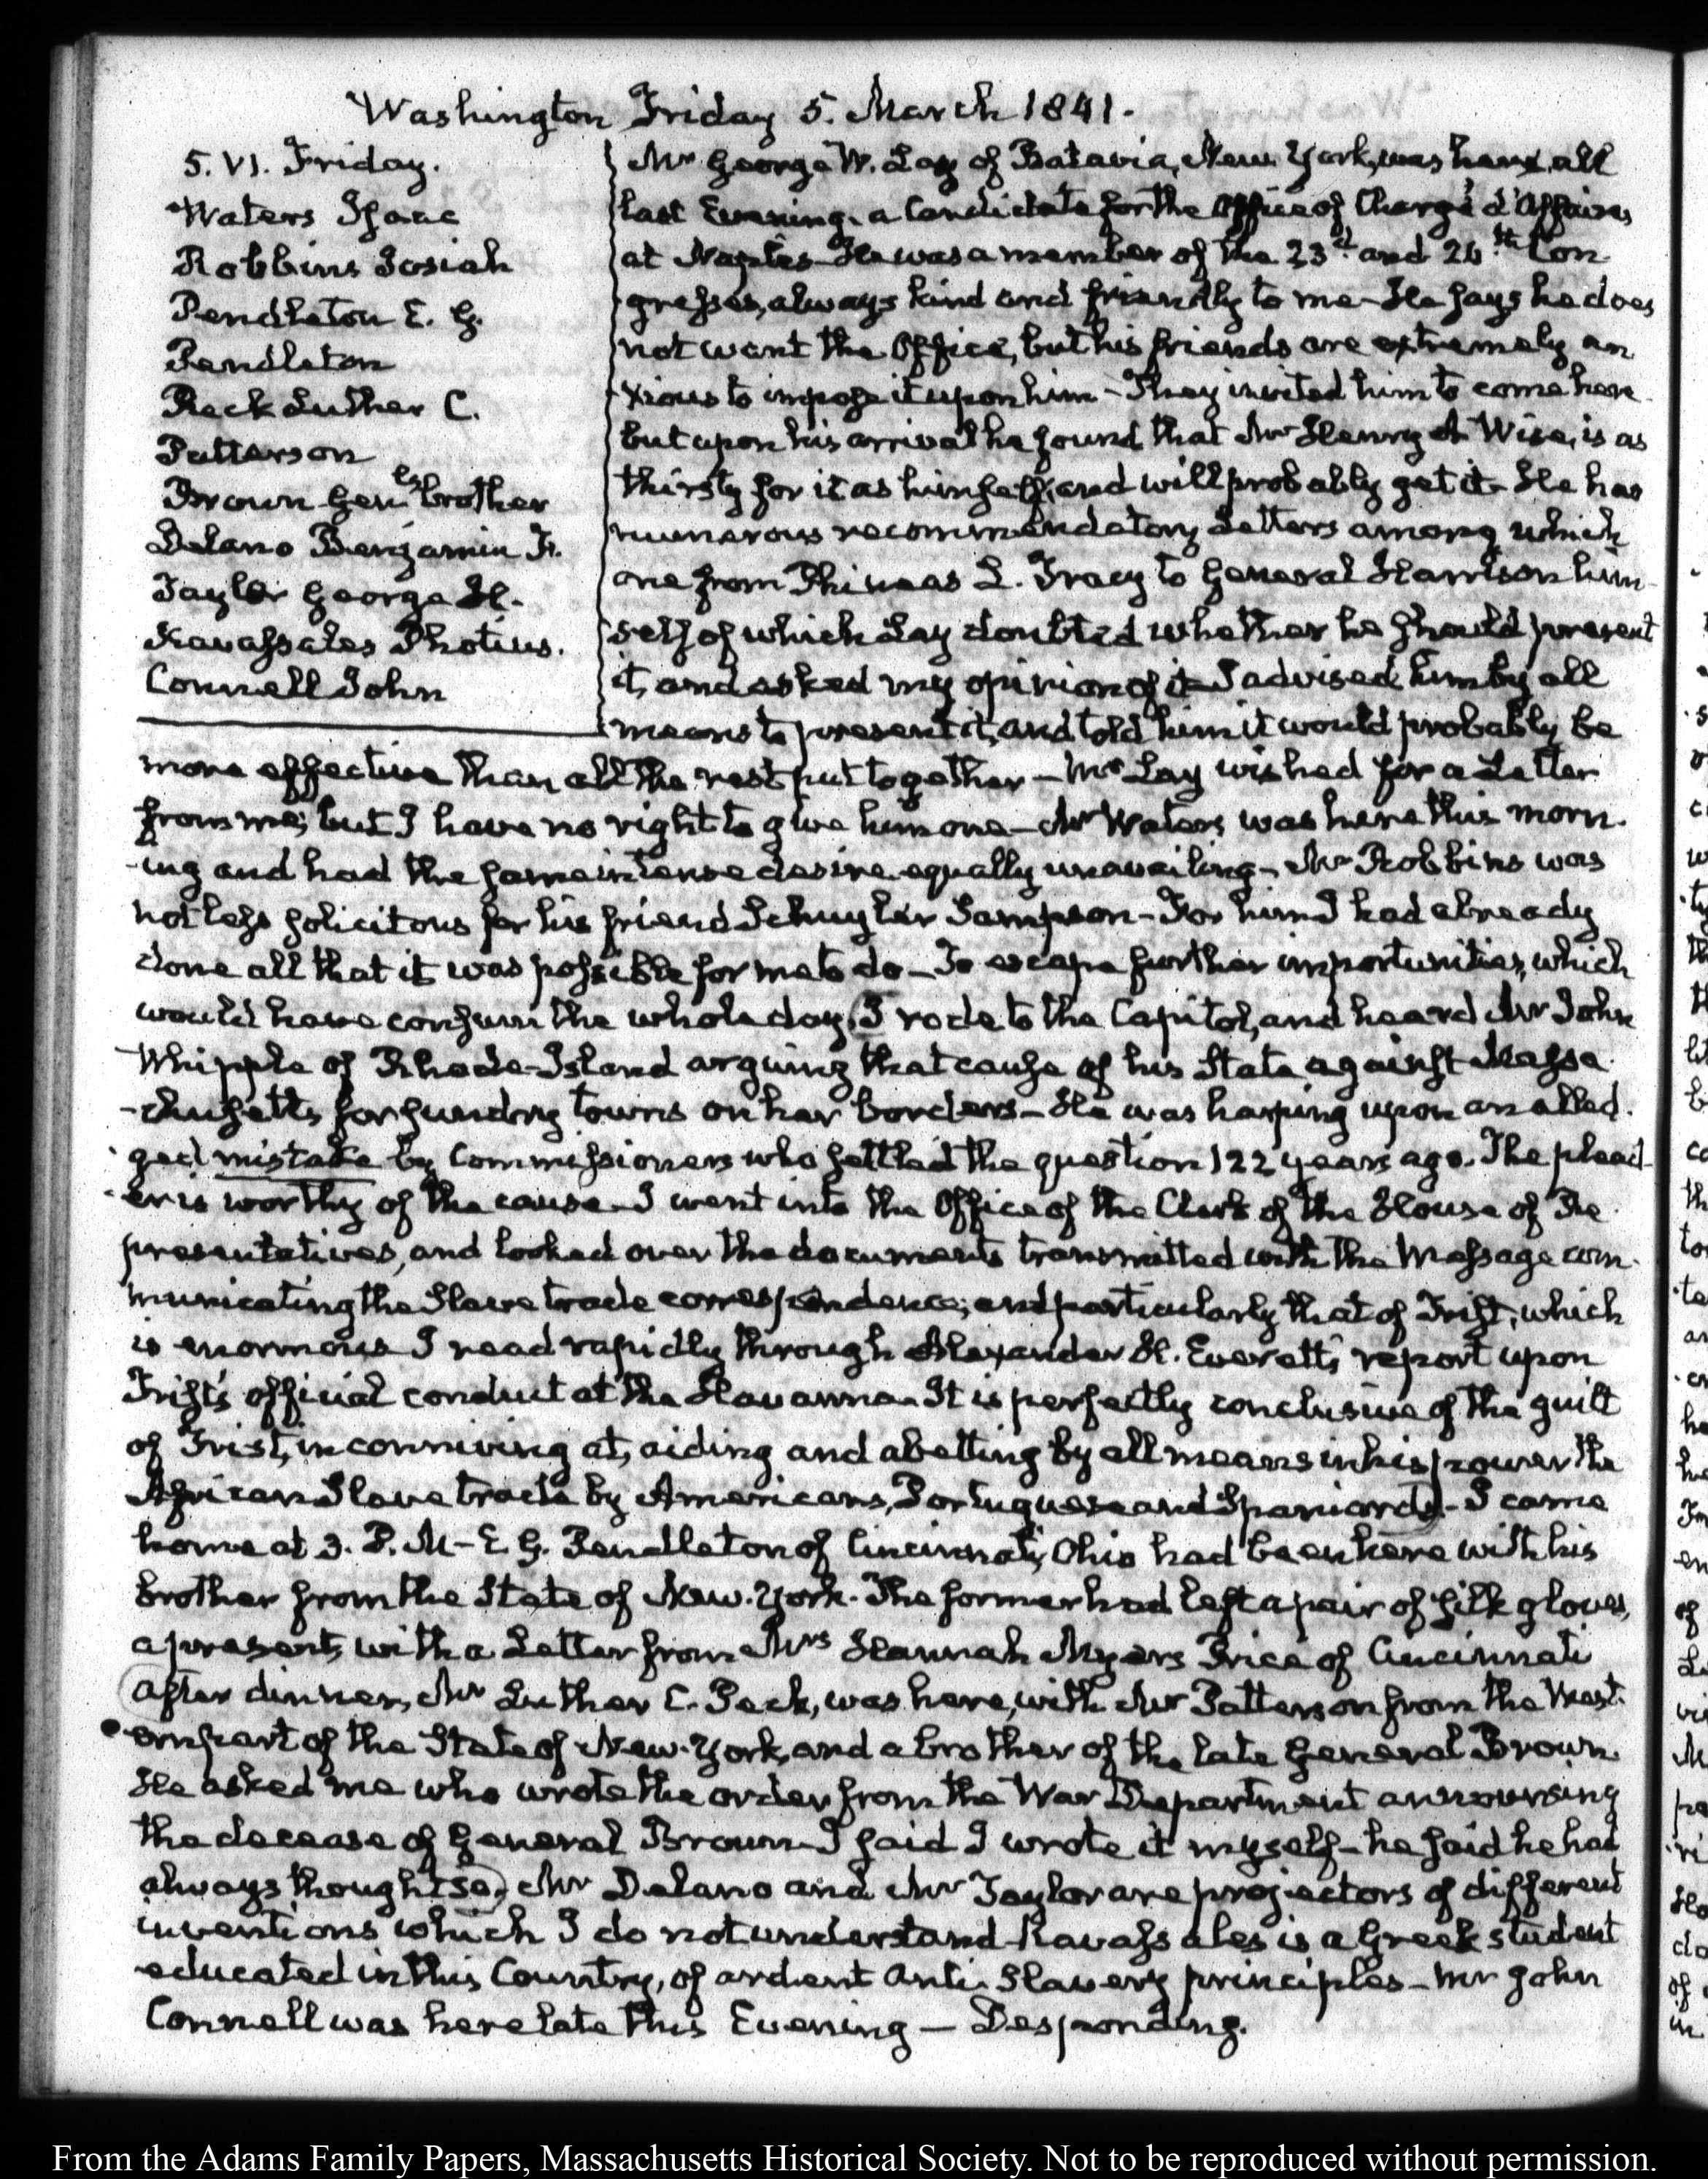 Washington Friday 5. March 1841.
5. VI. Friday.
Waters Isaac
Robbins Josiah
Pendleton E. G.
Pendleton
Peck Luther C.
Patterson
Brown Genls brother
Delano Benjamin F.
Taylor George H.
Kavassales Photius.
Connell John
Mr George W. Lay of Batavia, New York, was here, all
last Evening, a Candidate for the Office of Chargé d'Affaires
at Naples. He was a member of the 23d and 24th Con
gresses, always kind and friendly to me. He says he does
not want the Office, but his friends are extremely an
-xious to impose it upon him - They invited him to come here
but upon his arrival he found that Mr Henry A Wise, is as
thirsty for it as himself, and will probably get it. He has
numerous recommendatory Letters among which
one from Phineas L. Tracy to General Harrison him-
self of which Lay doubted whether he should present
it, and asked my opinion of it. I advised him by all
means to present it, and told him it would probably be
more effective than all the rest put together - Mr Lay wished for a Letter
from me; but I have no right to give him one - Mr Waters was here this morn.
-ing and had the same intense desire equally unavailing - Mr Robbins was
not less solicitous for his friend Schuyler Sampson - For him I had already
done all that it was possible for me to do - To escape further importunities, which
would have consum the whole day, I rode to the Capitol, and heard Mr John
Whipple of Rhode-Island arguing that cause of his State against Massa
-chusetts, for sundry towns on her borders - He was harping upon an alled.
ged mistake by Commissioners who settled the question 122 years ago. The plead-
-er is worthy of the cause - I went into the Office of the Clerk of the House of Re
presentatives, and looked over the documents transmitted with the Message com-
municating the Slave trade correspondence; and particularly that of Trist, which
is enormous I read rapidly through Alexander H. Everett's report upon
Trist's official conduct at the Havanna. It is perfectly conclusive of the guilt
of Trist, in conniving at, aiding and abetting by all means in his power the
African Slave trade by Americans, Portuguese and Spaniards - I came
home at 3. P. M - E. G. Pendleton of Cincinnati, Ohio had been here with his
brother from the State of New-York. The former had left a pair of silk gloves,
a present, with a Letter from Mrs Hannah Myers Price of Cincinnati
After dinner, Mr Luther C. Peck, was here, with Mr Patterson from the West.
ern part of the State of New-York, and a brother of the late General Brown.
He asked me who wrote the order from the War Department announcing
the decease of General Brown - I said I wrote it myself - he said he had
always thought so, Mr Delano and Mr Taylor are projectors of different
inventions which I do not understand - Kavassales is a Greek student
educated in this Country, of ardent Anti-Slavery principles - Mr John
Connell was here late this Evening - Desponding.
From the Adams Family Papers, Massachusetts Historical Society. Not to be reproduced without permission.